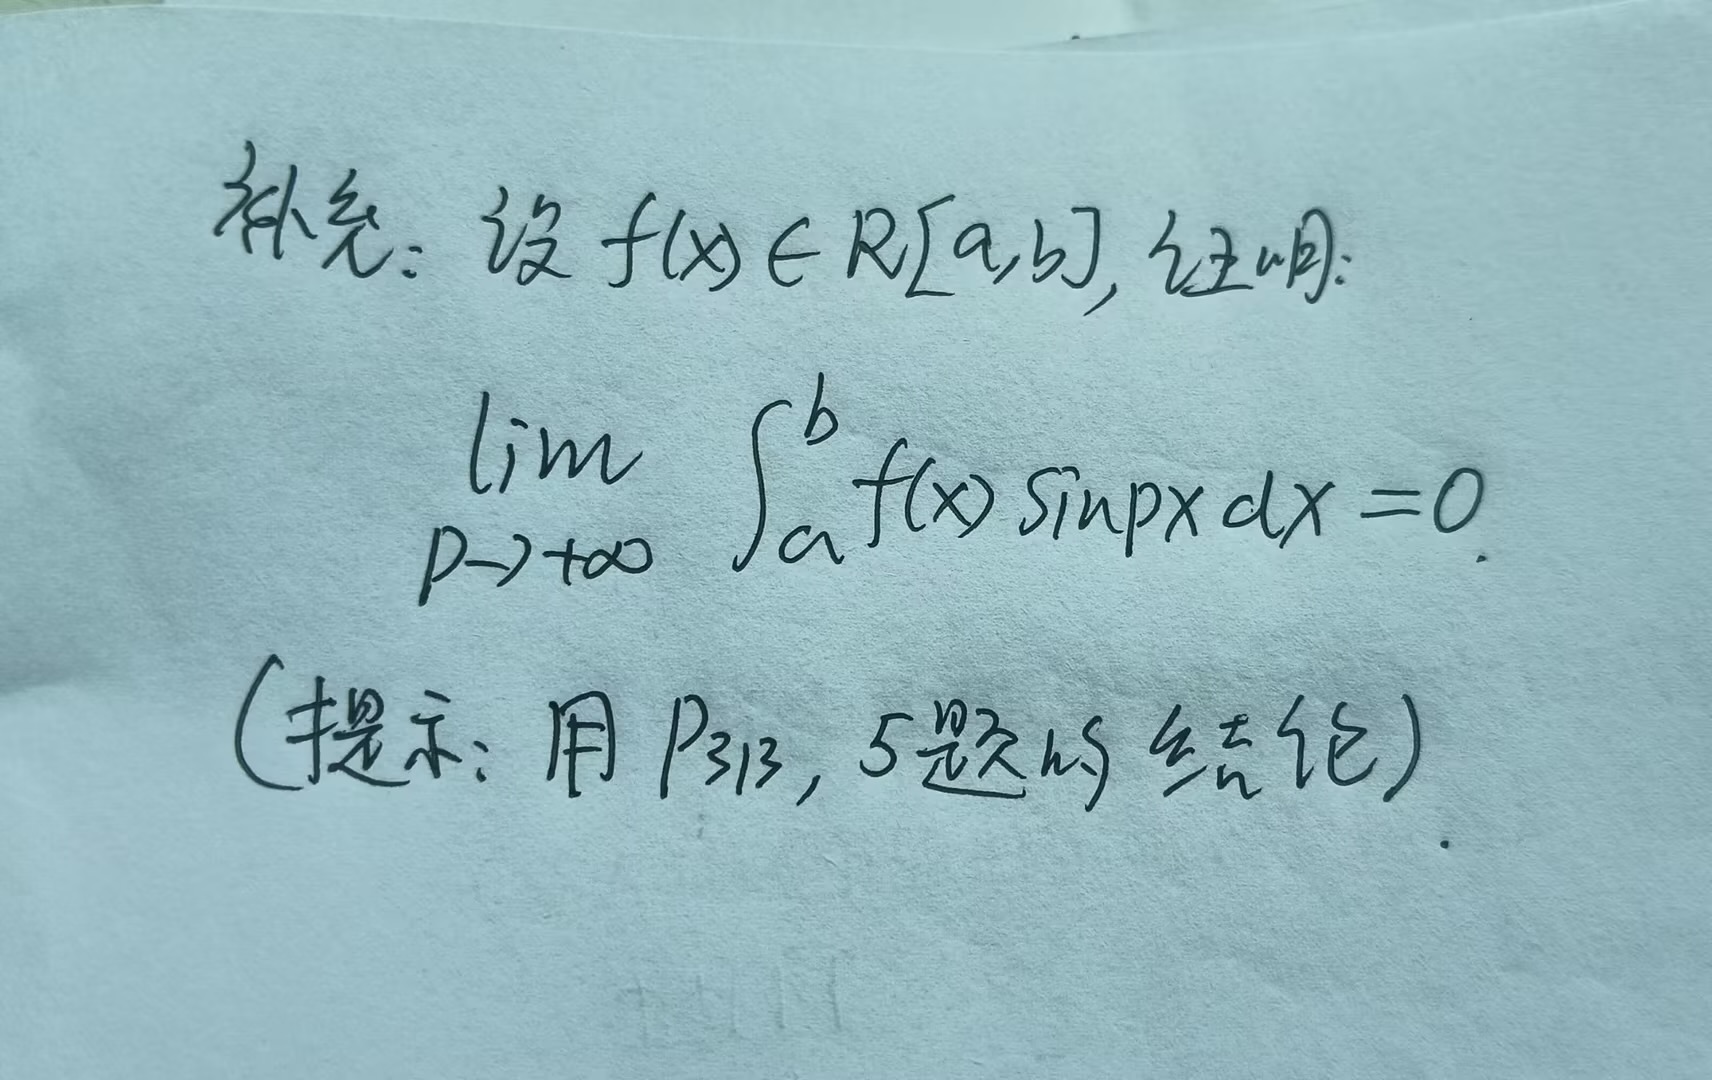 补充: 设 f(x) ∈ R[a,b], 证明:
lim_{p→+∞} ∫_a^b f(x) sinpx dx = 0.
(提示: 用 P313, 5题的结论).